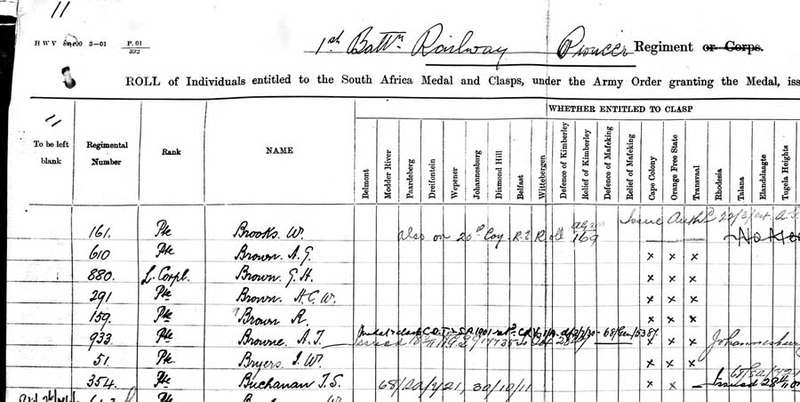 11
H W V 3-01 P. 01
1st Battn Railway Pioneer Regiment or Corps.
ROLL of Individuals entitled to the South Africa Medal and Clasps, under the Army Order granting the Medal, iss
WHETHER ENTITLED TO CLASP
11
To be left blank Regimental Number Rank NAME Belmont Modder River Paardeberg Dreifontein Wepener Johannesberg Diamond Hill Belfast Wittebergen Defence of Kimberley Relief of Kimberley Defence of Mafeking Relief of Mafeking Cape Colony Orange Free State Transvaal Rhodesia Talana Elandslaagte Tugela Heights
Issue Auth
161. Pte Brooks. W. also on 20th Coy. R.E Roll 169
610 Pte Brown. A. G. x x x
880 L. Corpl. Brown. G. H. x x x
291 Pte Brown. H. C. W. x x x
159. Pte Brown R. x x x
933 Pte Browne. A. T. Johannesburg
51. Pte Bryers. J. W. x x x
354. Pte Buchanan T. S. 30/10/11 x x Issued